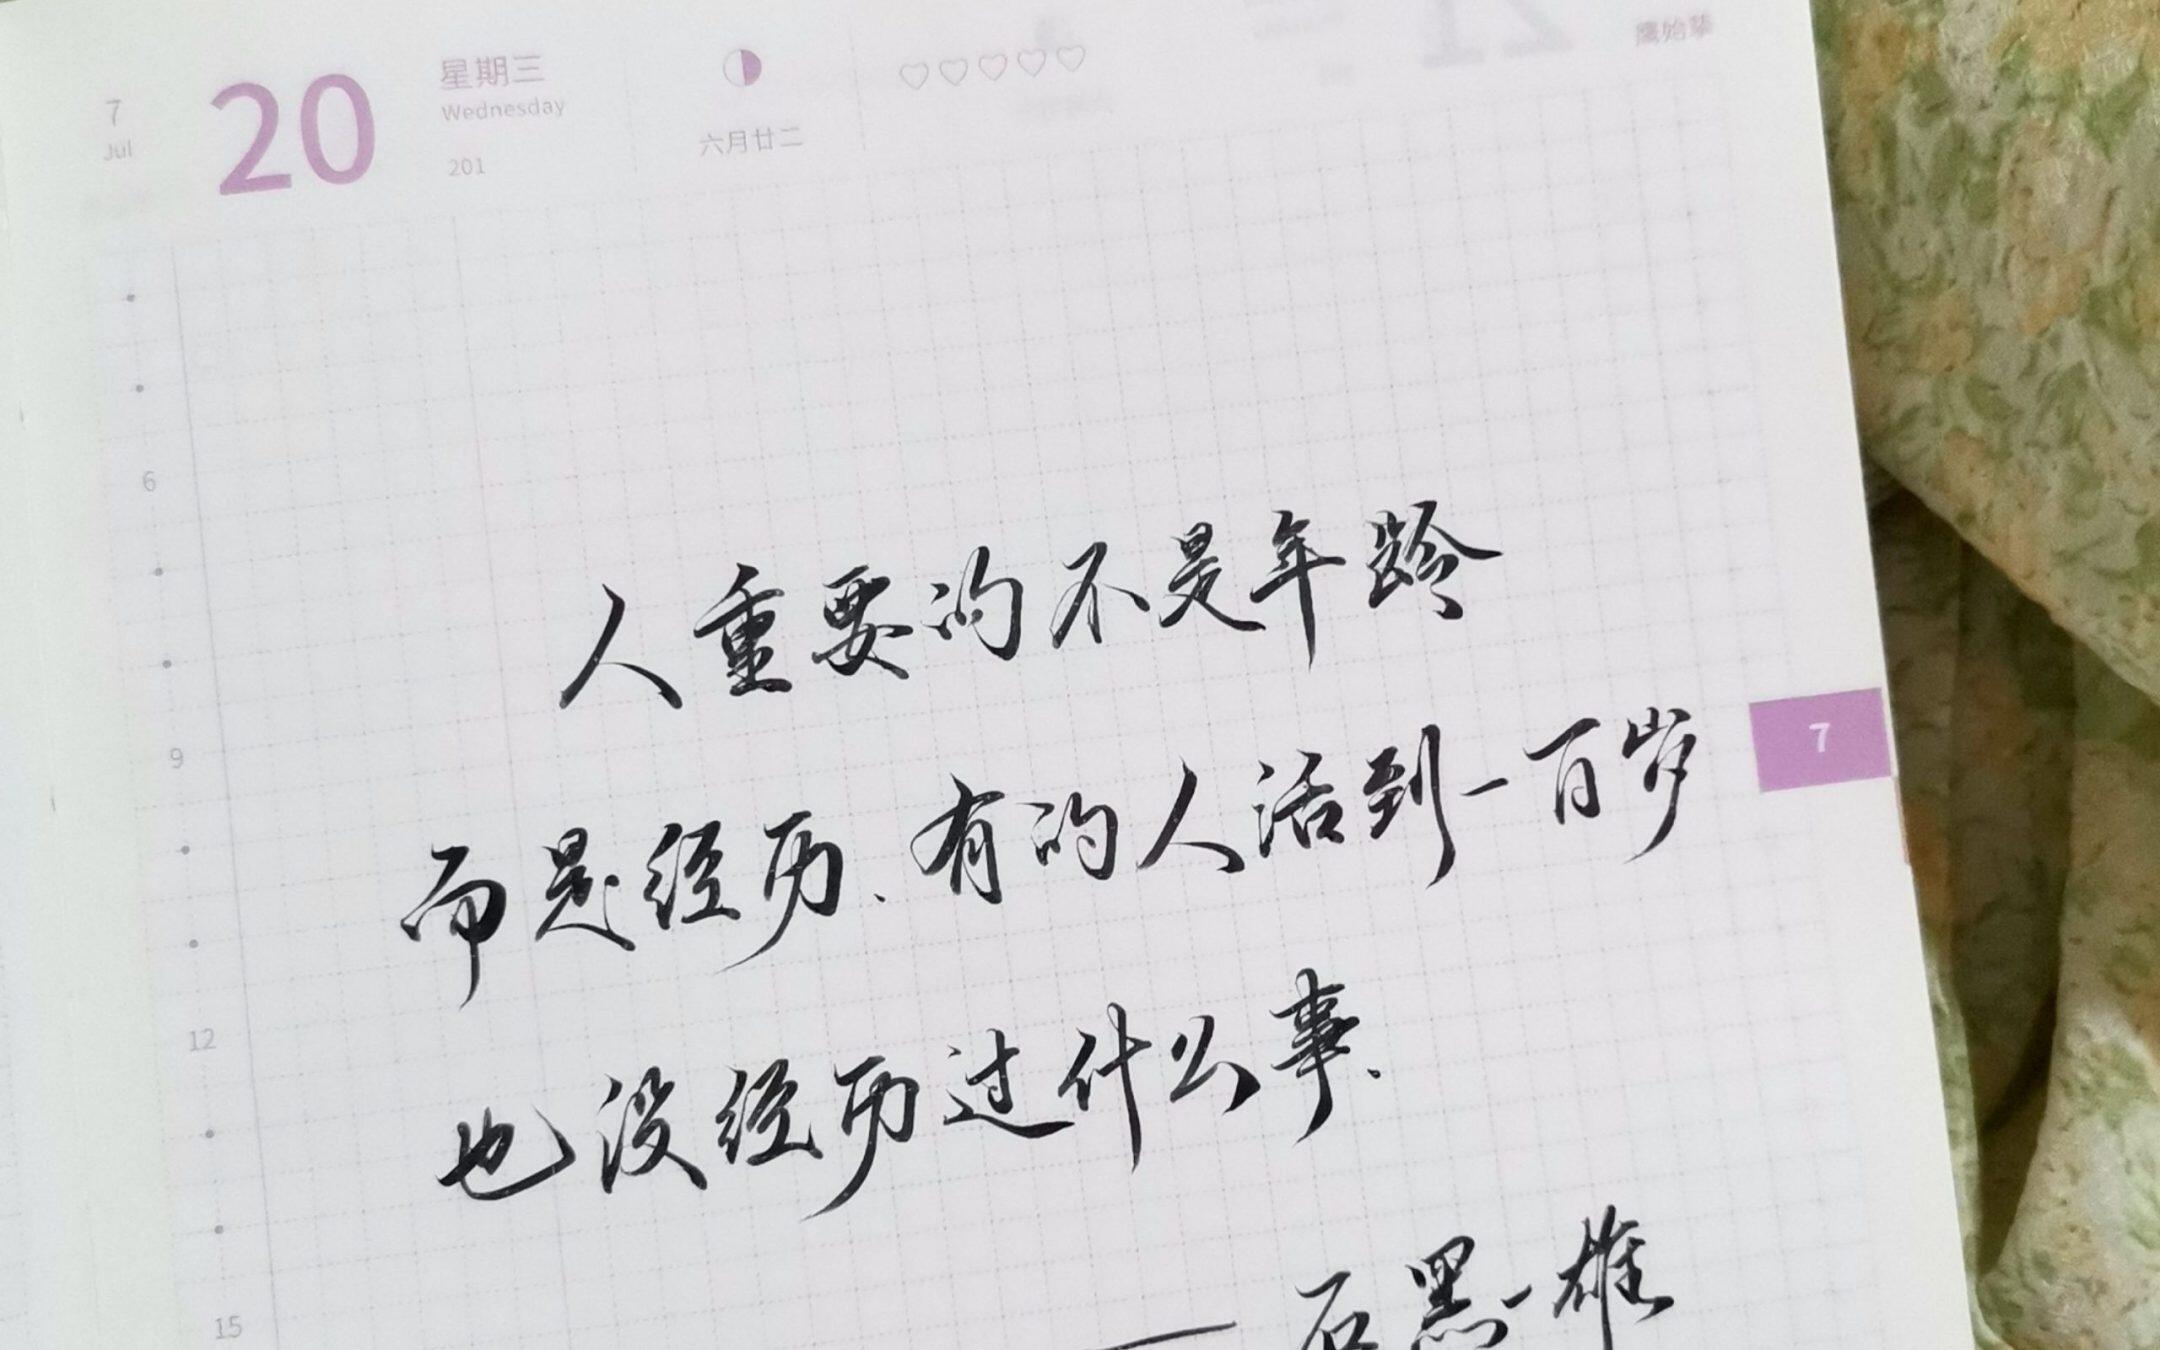 7
Jul
20
星期三
Wednesday
201
六月廿二
鹰始挚
6
人重要的不是年龄
7
9
而是经历、有的人活到一百岁
12
也没经历过什么事、
15
——石黑一雄